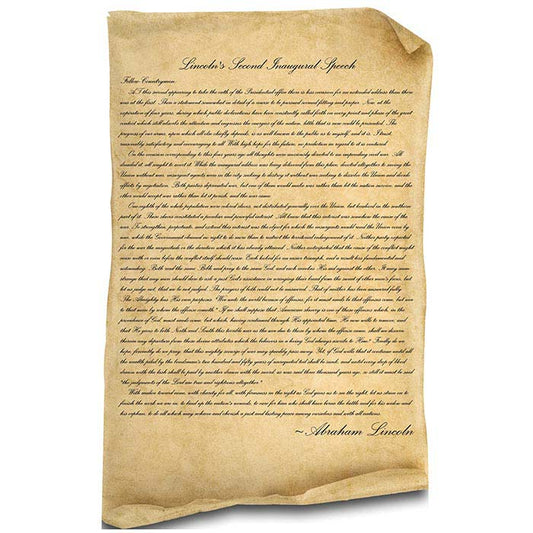 Lincoln's Second Inaugural Speech
Fellow Countrymen:
AT this second appearing to take the oath of the Presidential office there is less occasion for an extended address than there
was at the first. Then a statement somewhat in detail of a course to be pursued seemed fitting and proper. Now, at the
expiration of four years, during which public declarations have been constantly called forth on every point and phase of the great
contest which still absorbs the attention and engrosses the energies of the nation, little that is new could be presented. The
progress of our arms, upon which all else chiefly depends, is as well known to the public as to myself, and it is, I trust,
reasonably satisfactory and encouraging to all. With high hope for the future, no prediction in regard to it is ventured.
On the occasion corresponding to this four years ago all thoughts were anxiously directed to an impending civil war. All
dreaded it, all sought to avert it. While the inaugural address was being delivered from this place, devoted altogether to saving the
Union without war, insurgent agents were in the city seeking to destroy it without war seeking to dissolve the Union and divide
effects by negotiation. Both parties deprecated war, but one of them would make war rather than let the nation survive, and the
other would accept war rather than let it perish, and the war came.
One-eighth of the whole population were colored slaves, not distributed generally over the Union, but localized in the southern
part of it. These slaves constituted a peculiar and powerful interest. All knew that this interest was somehow the cause of the
war. To strengthen, perpetuate, and extend this interest was the object for which the insurgents would rend the Union even by
war, while the Government claimed no right to do more than to restrict the territorial enlargement of it. Neither party expected
for the war the magnitude or the duration which it has already attained. Neither anticipated that the cause of the conflict might
cease with or even before the conflict itself should cease. Each looked for an easier triumph, and a result less fundamental and
astounding. Both read the same Bible and pray to the same God, and each invokes His aid against the other. It may seem
strange that any men should dare to ask a just God's assistance in wringing their bread from the sweat of other men's faces, but
let us judge not, that we be not judged. The prayers of both could not be answered. That of neither has been answered fully.
The Almighty has His own purposes. "Woe unto the world because of offenses; for it must needs be that offenses come, but woe
to that man by whom the offense cometh." If we shall suppose that American slavery is one of those offenses which, in the
providence of God, must needs come, but which, having continued through His appointed time, He now wills to remove, and
that He gives to both North and South this terrible war as the woe due to those by whom the offense came, shall we discern
therein any departure from those divine attributes which the believers in a living God always ascribe to Him? Fondly do we
hope, fervently do we pray, that this mighty scourge of war may speedily pass away. Yet, if God wills that it continue until all
the wealth piled by the bondsman's two hundred and fifty years of unrequited toil shall be sunk, and until every drop of blood
drawn with the lash shall be paid by another drawn with the sword, as was said three thousand years ago, so still it must be said
"the judgments of the Lord are true and righteous altogether."
With malice toward none, with charity for all, with firmness in the right as God gives us to see the right, let us strive on to
finish the work we are in, to bind up the nation's wounds, to care for him who shall have borne the battle and for his widow and
his orphan, to do all which may achieve and cherish a just and lasting peace among ourselves and with all nations.
~Abraham Lincoln